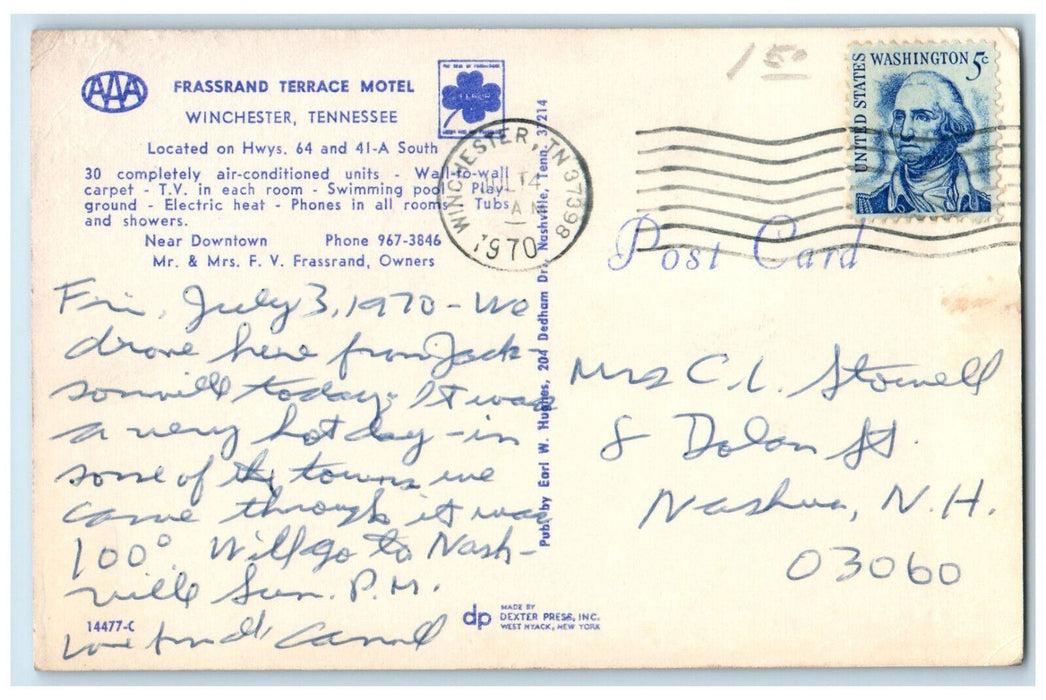 AAA
FRASSRAND TERRACE MOTEL
WINCHESTER, TENNESSEE
Located on Hwys. 64 and 41-A South
30 completely air-conditioned units - Wall-to-wall
carpet - T.V. in each room - Swimming pool - Play-
ground - Electric heat - Phones in all rooms - Tubs
and showers.
Near Downtown Phone 967-3846
Mr. & Mrs. F. V. Frassrand, Owners
Fri, July 3, 1970 - We
drove here from Jack-
sonville today. It was
a very hot day - in
some of the towns we
came through it was
100°. Will go to Nash-
ville Sun. P.M.
Love Carroll
14477-C
Pub. by Earl W. Hughes, 204 Dedham Dr., Nashville, Tenn. 37214
dp
MADE BY
DEXTER PRESS, INC.
WEST NYACK, NEW YORK
WINCHESTER, TN 37398
JUL 4
AM
1970
150
UNITED STATES
WASHINGTON 5c
Post Card
Mrs C. L. Stowell
8 Dolan St.
Nashua, N.H.
03060